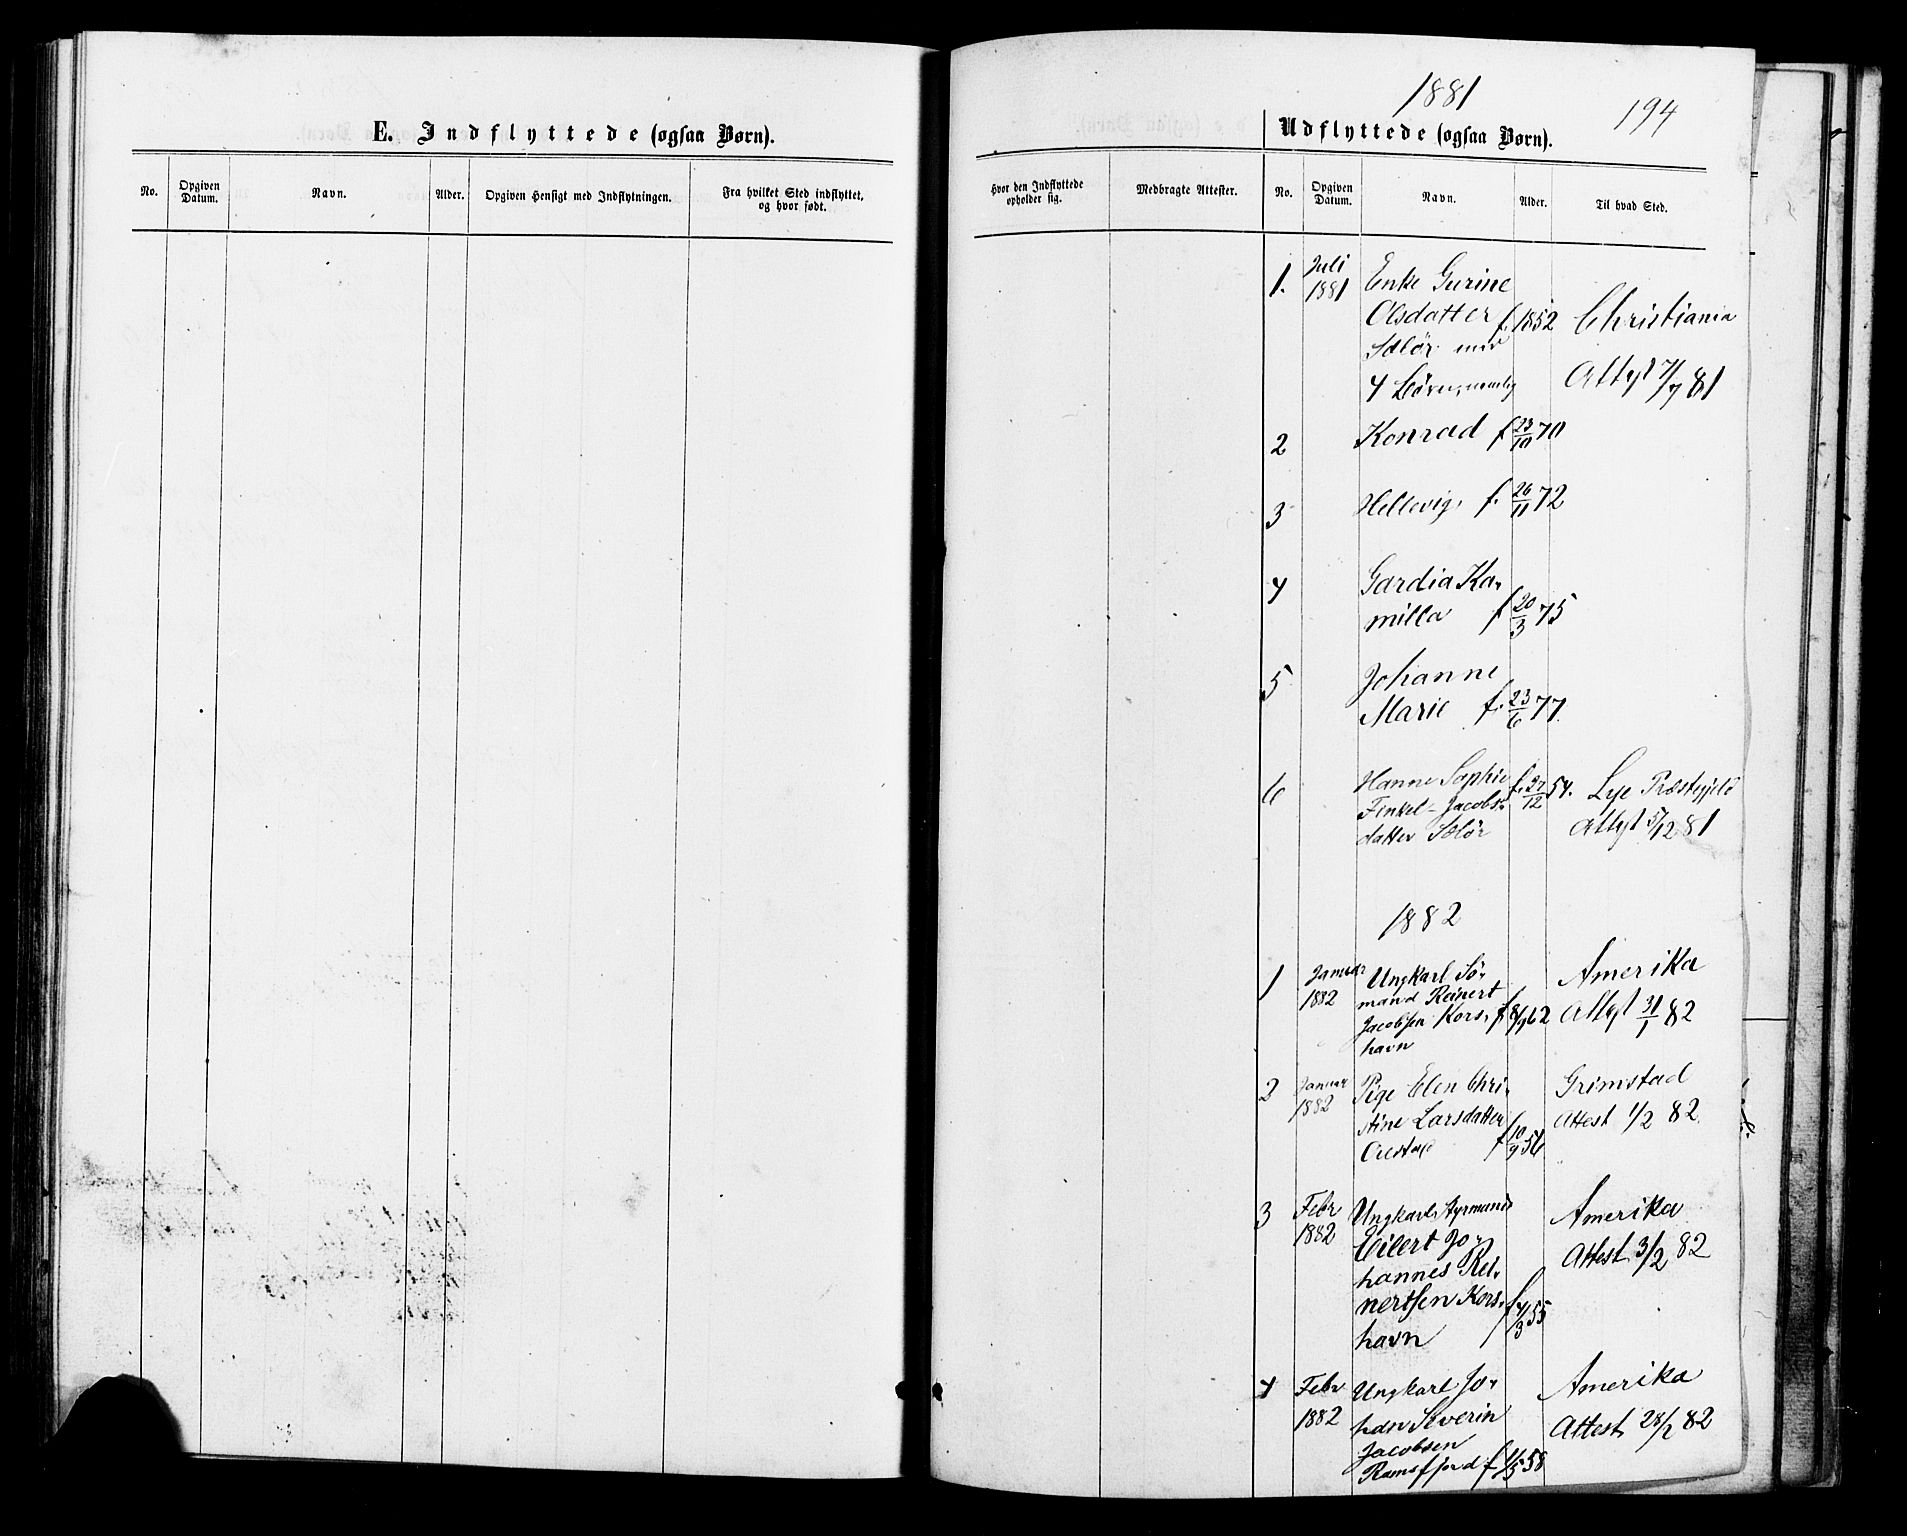 E. Indflyttede (ogsaa Børn).
No.
Opgiven Datum.
Navn.
Alder.
Opgiven Hensigt med Indflytningen.
Fra hvilket Sted indflyttet, og hvor født.
1881
194
Udflyttede (ogsaa Børn).
Hvor den Indflyttede opholder sig.
Medbragte Attester.
No.
Opgiven Datum.
Navn.
Alder.
Til hvad Sted.
1. Juli 1881 Enke Gurine
Olsdatter f. 1852 Christiania
Sælør med
4 Børn, nemlig Attest 7/7 81
2 Konrad f 23/10 70
3 Hellevig f. 26/11 72
4 Gardia Ka-
milla f 20/3 75
5 Johanne
Marie f. 23/6 77.
6 Hanne Sophie f. 27/12 54. Lye Præstegjeld
Finkel-Jacobs-
datter Sælør Attest 5/12 81
1882
1 Januar 1882 Ungkarl Sø- Amerika
mand Reinert
Jacobsen Kors- f 8/9 62 Attest 31/1 82
havn
2 Januar 1882 Pige Elen Chri- Grimstad
stine Larsdatter Attest 1/2 82
f 10/9 56
3 Febr 1882 Ungkarl Styrmand Amerika
Eilert Jo- Attest 3/2 82
hannes Rei-
nertsen Kors- f 4/3 55
havn
4 Febr 1882 Ungkarl Jo- Amerika
han Severin Attest 28/2 82
Jacobsen
Ramsfjord f 1/5 58